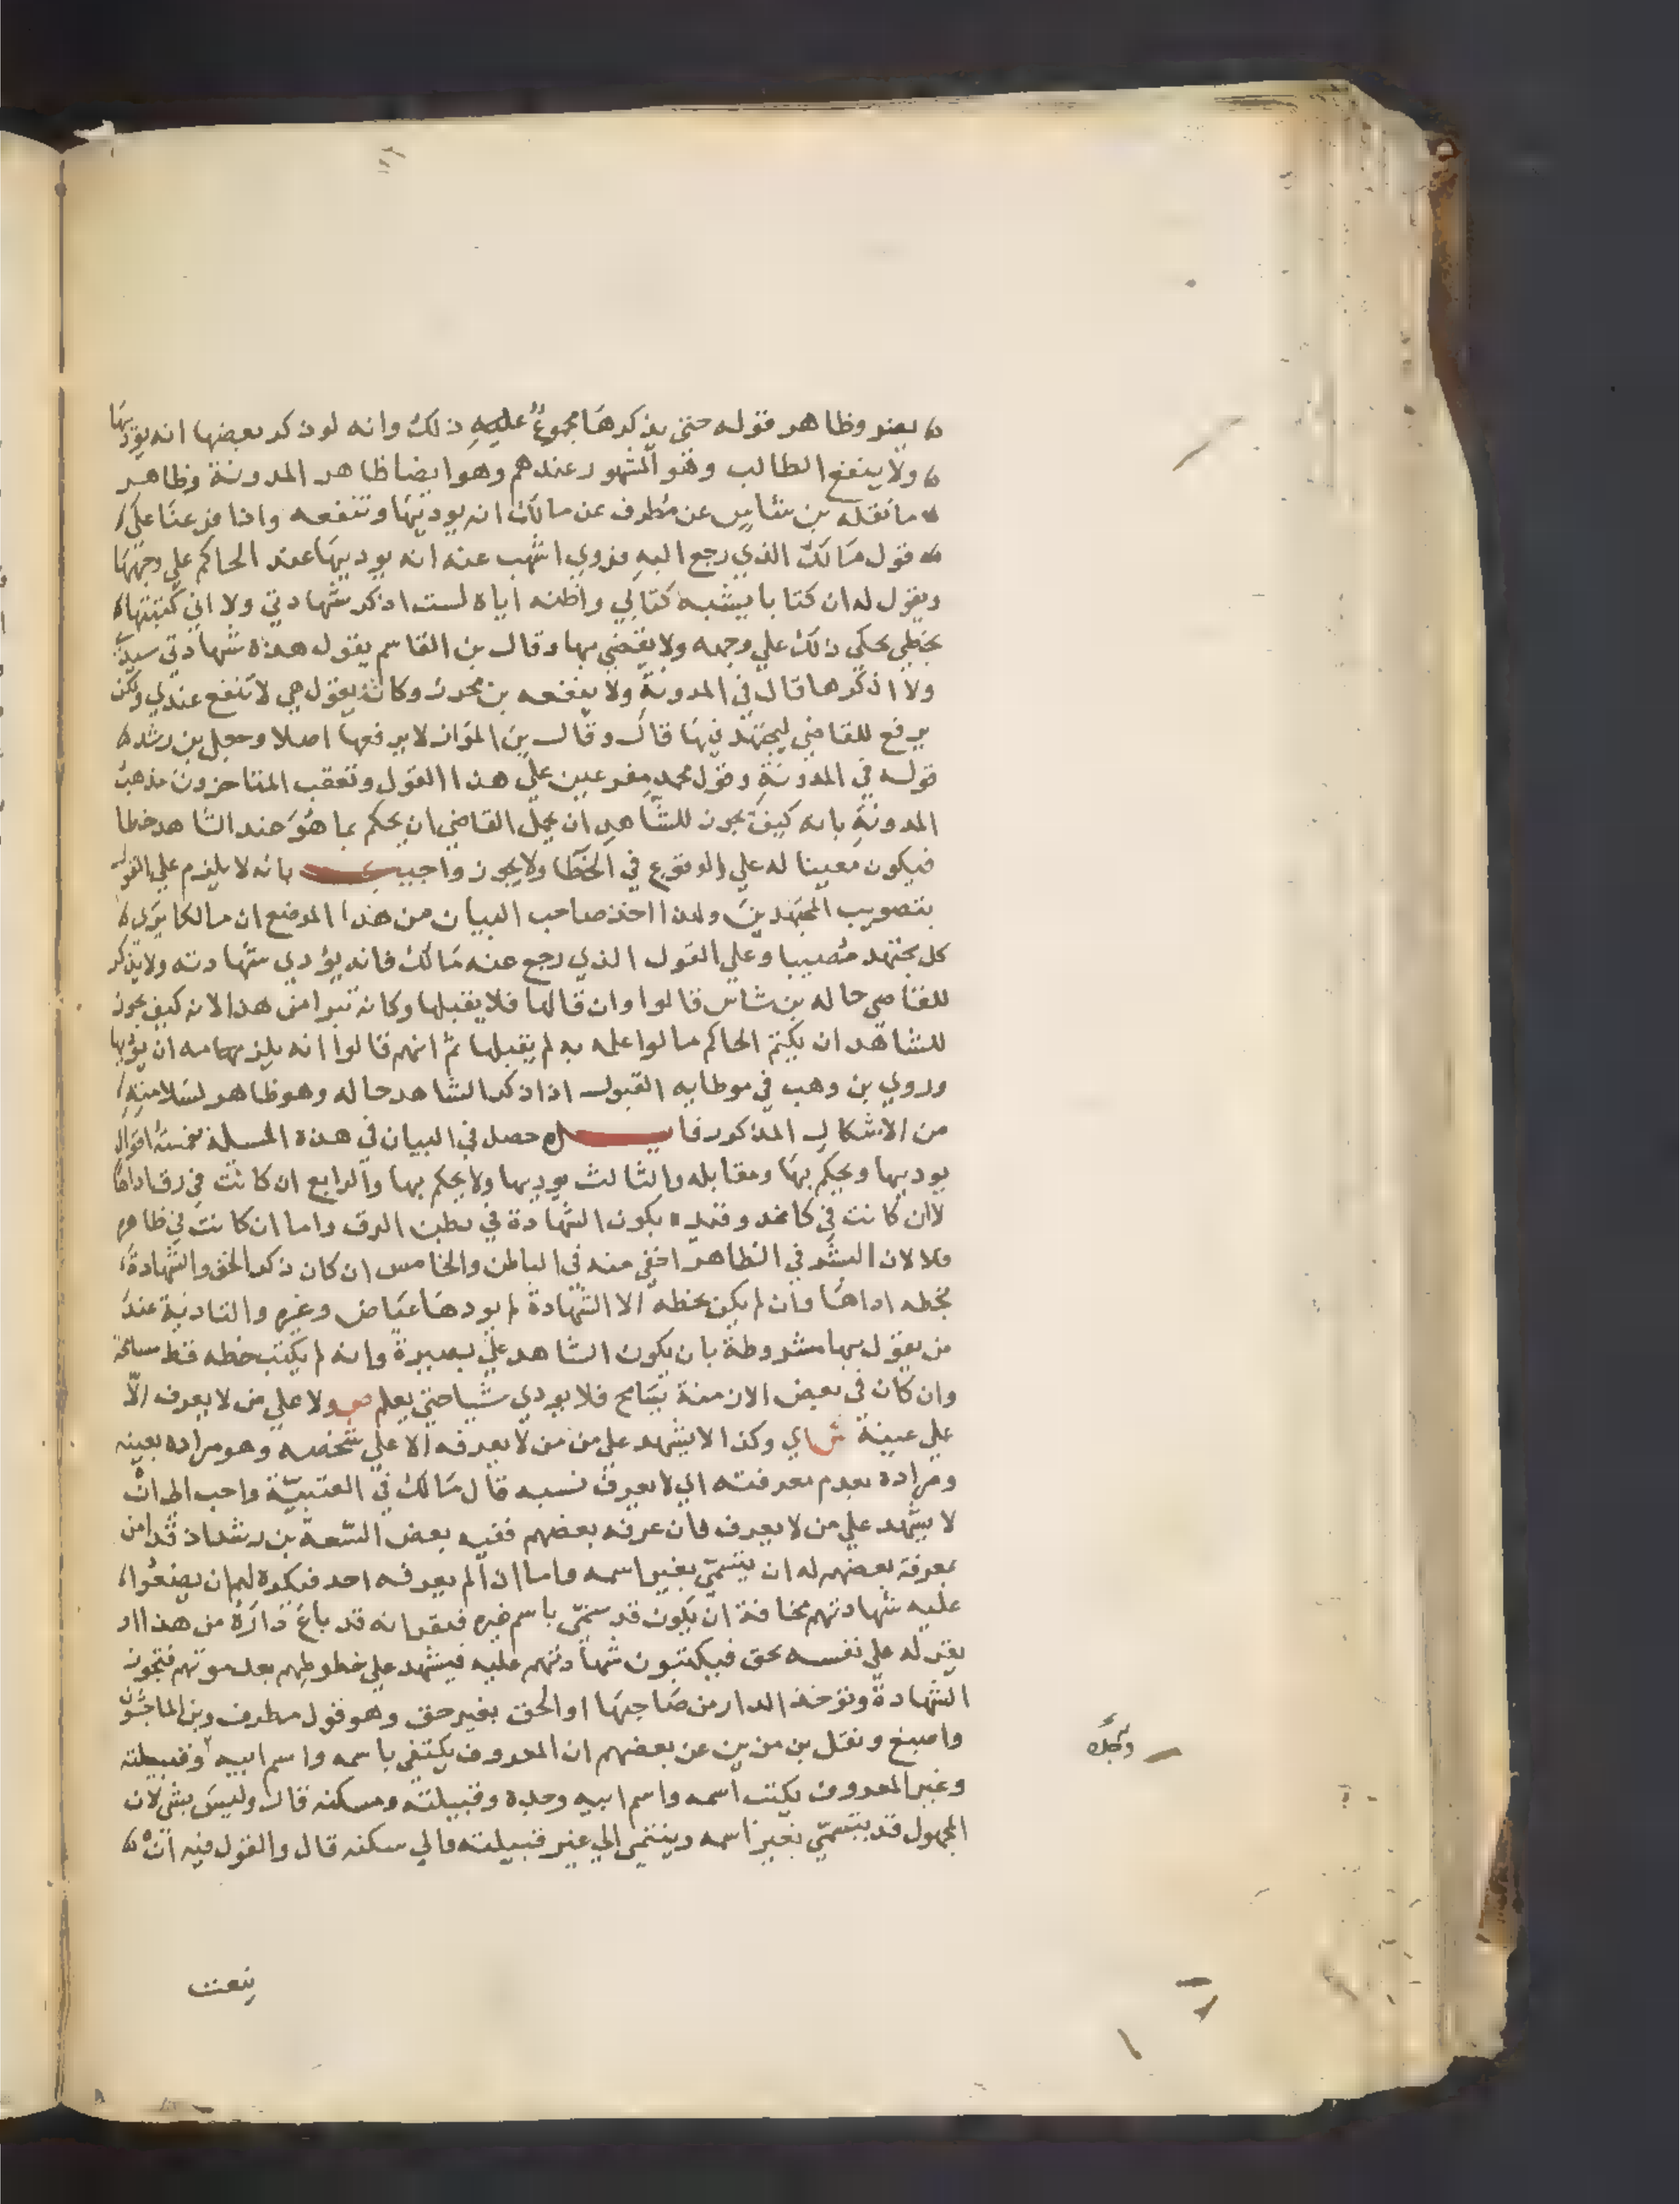 يضر وظاهر قوله حتى يذكرها مجموع عليه ذلك وانه لو ذكر بعضها انه يوديها
ولا ينفع الطالب وهو المشهور عندهم وهو ايضا ظاهر المدونة وظاهر
ما نقله بن شاس عن مطرف عن مالك انه يوديها وتنفعه واذا فرعنا على
قول مالك الذي رجع اليه فروي اشهب عنه انه يوديها عند الحاكم علي وجهها
ويقول له ان كتابا يشبه كتابي واظنه اياه لست اذكر شهادتي ولا اني كتبتها
بخطي يحكي ذلك علي وجهه ولا يقضي بها وقال بن القاسم يقول هذه شهادتي بيدي
ولا اذكرها قال في المدونة ولا ينفعه بن محرز وكانه يقول هي لا تنفع عندي ولكن
يرفع للقاضي ليجتهد فيها قال وقال بن المواز لا يرفعها اصلا وجعل بن رشد
قوله في المدونة وقول محمد مفرعين علي هذا القول وتعقب المتاخرون مذهب
المدونة بانه كيف يجوز للشاهد ان يحمل القاضي ان يحكم بما هو عند الشاهد خطا
فيكون معينا له علي الوقوع في الخطا ولا يجوز واجيب بانه لا يلزم علي القول
بتصويب المجتهدين ولهذا اخذ صاحب البيان من هذا الموضع ان مالكا يرى
كل مجتهد مصيبا وعلي القول الذي رجع عنه مالك فانه يؤدي شهادته ولا يذكر
للقاضي حاله بن شاس قالوا وان قالها فلا يقبلها وكان تبرا من هذا لانه كيف يجوز
للشاهد ان يكتم الحاكم ما لو اعلمه به لم يقبلها ثم انهم قالوا انه يلزمه ان يؤديها
وروي بن وهب في موطايه القبول اذا ذكر الشاهد حاله وهو ظاهر لسلامته
من الاشكال المذكور حصل في البيان في هذه المسلة خمسة اقوال
يوديها ويحكم بها ومقابله والثالث يوديها ولا يحكم بها والرابع ان كانت في رق اداها
لا ان كانت في كاغد وقيد يكون الشهادة في بطن الرق واما ان كانت في ظاهره
فلا لان البشر في الظاهر اخفي منه في الباطن والخامس ان كان ذكر الحق والشهادة
بخطه اداها وان لم يكن بخطه الا الشهادة لم يودها عياض وغيره والتادية عند
من يقول بها مشروطة بان يكون الشاهد علي بصيرة وانه لم يكتب خطه قط مسامحة
وان كان في بعض الازمنة يتسامح فلا يودي شيا حتى يعلم ص ولا علي من لا يعرف الا
علي عينه ش اي وكذا لا يشهد علي من من لا يعرفه الا علي شخصه وهو مراده بعينه
ومراده بعدم معرفته اي لا يعرف نسبه قال مالك في العتبية واحب الي ان
لا يشهد علي من لا يعرف فان عرفه بعضهم ففيه بعض السعة بن رشد اذ قد امن
بمعرفة بعضهم له ان يتسمي بغير اسمه واما ان لم يعرفه احد فيكره لهم ان يضعوا
عليه شهادتهم مخافة ان يكون قد سمي باسم غيره فيقر انه قد باع داره من هذا او
يقر له علي نفسه بحق فيكتبون شهادتهم عليه فيشهد علي خطوطهم بعد موتهم فتجوز
الشهادة وتوخذ الدار من صاحبها او الحق بغير حق وهو قول مطرف وبن الماجشون
واصبغ ونقل بن مزين عن بعضهم ان المعروف يكتفي باسمه واسم ابيه او قبيلته
وغير المعروف يكتب اسمه واسم ابيه وجده وقبيلته ومسكنه قال وليس بشي لان
المجهول قد يتسمي بغير اسمه وينتمي الي غير قبيلته والي سكنه قال والقول فيه ان
وجده
ينعت